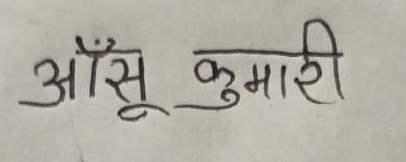 आँसू कुमारी